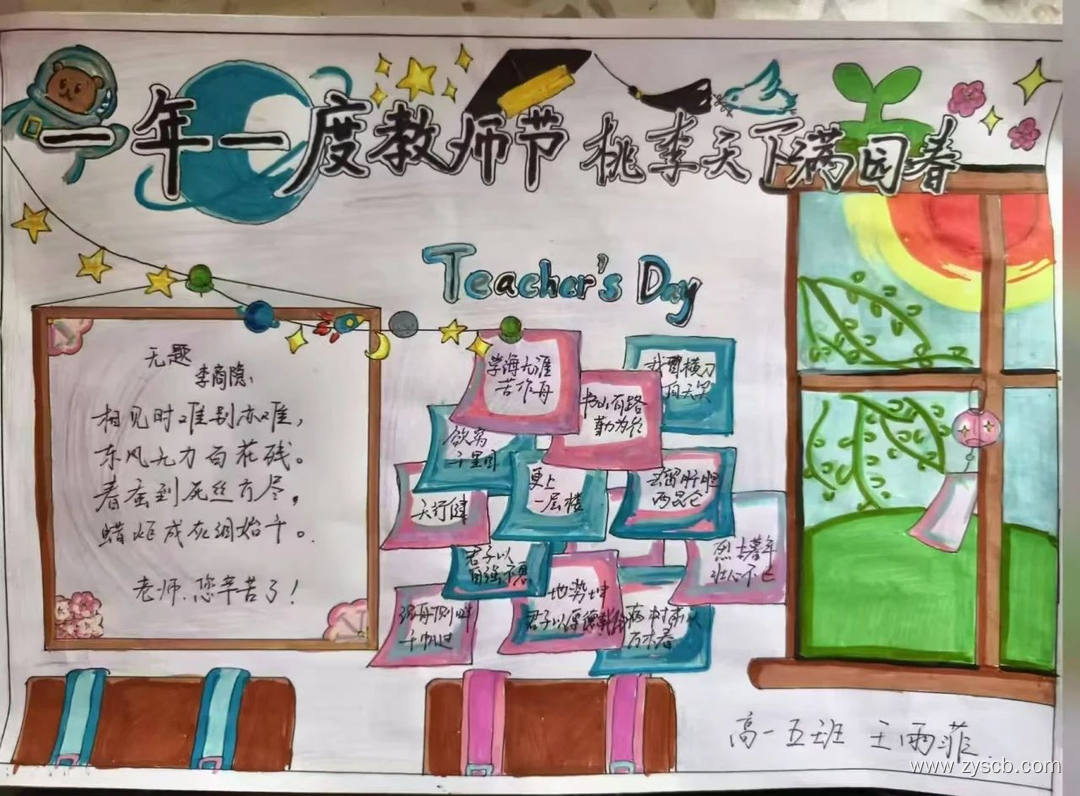 一年一度教师节 桃李天下满园春
Teacher's Day
无题
李商隐
相见时难别亦难,
东风无力百花残。
春蚕到死丝方尽,
蜡炬成灰泪始干。
老师,您辛苦了!
学海无涯
苦作舟
我自横刀
向天笑
书山有路
勤为径
饮马
更上
一层楼
去留肝胆
两昆仑
天行健
君子以
自强不息
烈士暮年
壮心不已
地势坤
君子以厚德载物
沉舟侧畔
千帆过
病树前头
万木春
高一五班 王雨菲
www.zyscb.com